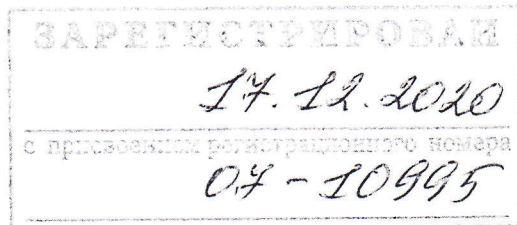 ЗАРЕГИСТРИРОВАН
17.12.2020
с присвоением регистрационного номера
07-10995